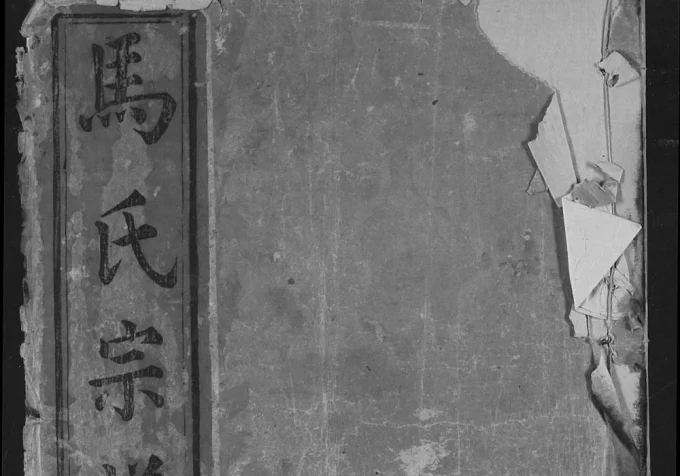 馬氏宗